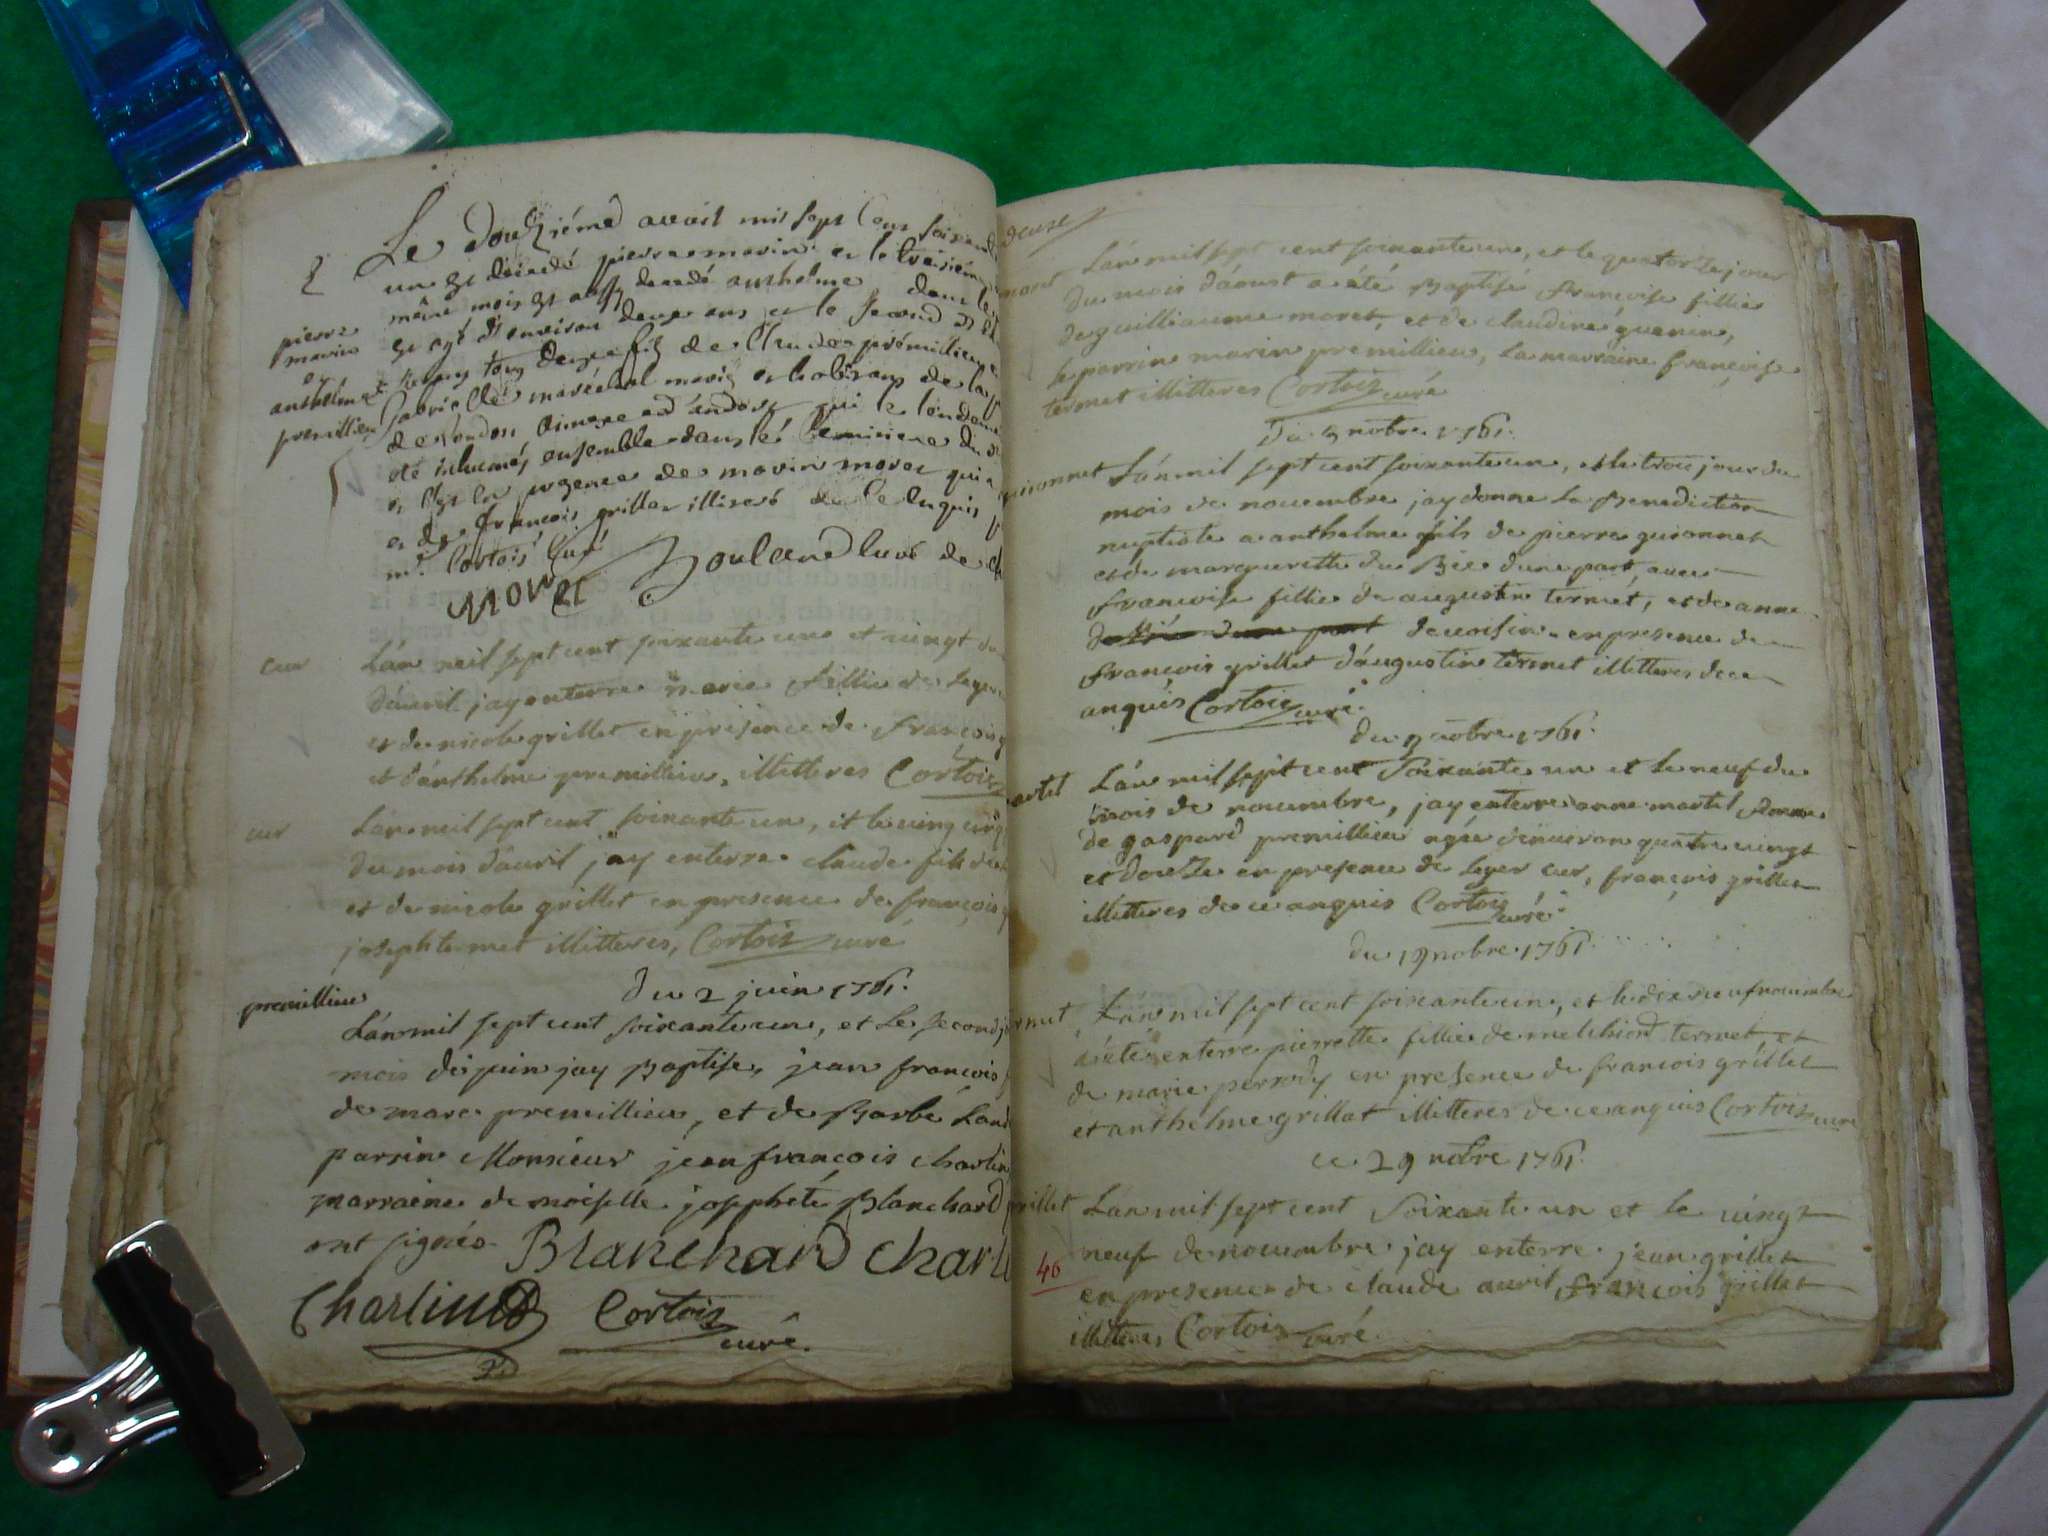 Le douzième avril mil sept cens soixante
un est décédé pierre marin et le treisiém
même mois est aussy décédé anthelme dans le
pierre
marin
et
anthelme
premillieu
agé d'environ deux ans et le second
tous deux fils de Claude prémillieu
Gabrielle maréchal mariés et habitans de la
qui le lendem
été inhumés ensemble dans le Cemitiere du
en presence de marin moret qui a
et de françois grillat illiteré de Ce Enquis
mr. Cortois Curé
MOREt Bouland Curé de
cur
Lán mil sept cent soixante une et vingt du
dauril jay enterre marie fillie de leger
et de nicole grillet en présence de françois g
et dánthelme premillieu, illitteres Cortois
cur
Lán mil sept cent soixante un, et le uing cinq
du mois dauril jay enterre claude fils de
et de nicole grillet en presence de françois g
joseph termet illitteres, Cortois curé
premillieu
du 2 juin 1761.
Lán mil sept cent soixante un, et le second j
mois de juin jay Baptise, jean françois
de marc premillieu, et de Barbe Land
parrin Monsieur jean françois charlin
marraine demoiselle josephete Blanchard
ont signés. Blanchard Charli
Charlin Cortois
curé.
moret
Lán mil sept cent soixante un, et le quatorze jour
du mois dáoust a été Baptisé francoise fillie
de guilliaume moret, et de claudine guerin,
le parrin marin premillieu, la marraine francoise
termet illitteres Cortois curé
Du 3 nobre 1761.
guionnet
Lán mil sept cent soixante un, et le trois jour du
mois de nouembre jay donne la Benediction
nuptiale a anthelme fils de pierre guionnet
et de marguerette du Bie dune part, auec
francoise fillie de augustin termet, et de anne
deuoisin en presence de
francois grillet dáugustin termet illitteres de ce
anquis Cortois curé.
du 9 nobre 1761.
martel
Lán mil sept cent Soixante un et le neuf du
mois de nouembre, jay enterre anne martel femme
de gaspard premillieu agée denuiron quatre uingt
et douze en presence de leger cur, françois grillet
illitteres de ce anquis Cortois curé.
du 19 nobre 1761.
termet
Lán mil sept cent soixante un, et le dix neuf nouembre
a été enterre pierrette fillie de melchiord termet, et
de marie perrody en presence de francois grillet
et anthelme grillat illitteres de ce anquis Cortois curé
ce 29 nobre 1761.
grillet
Lán mil sept cent Soixante un et le uingt
neuf de nouembre jay enterre jean grillet
46
en presence de claude auril françois grillat
illitteres Cortois curé.